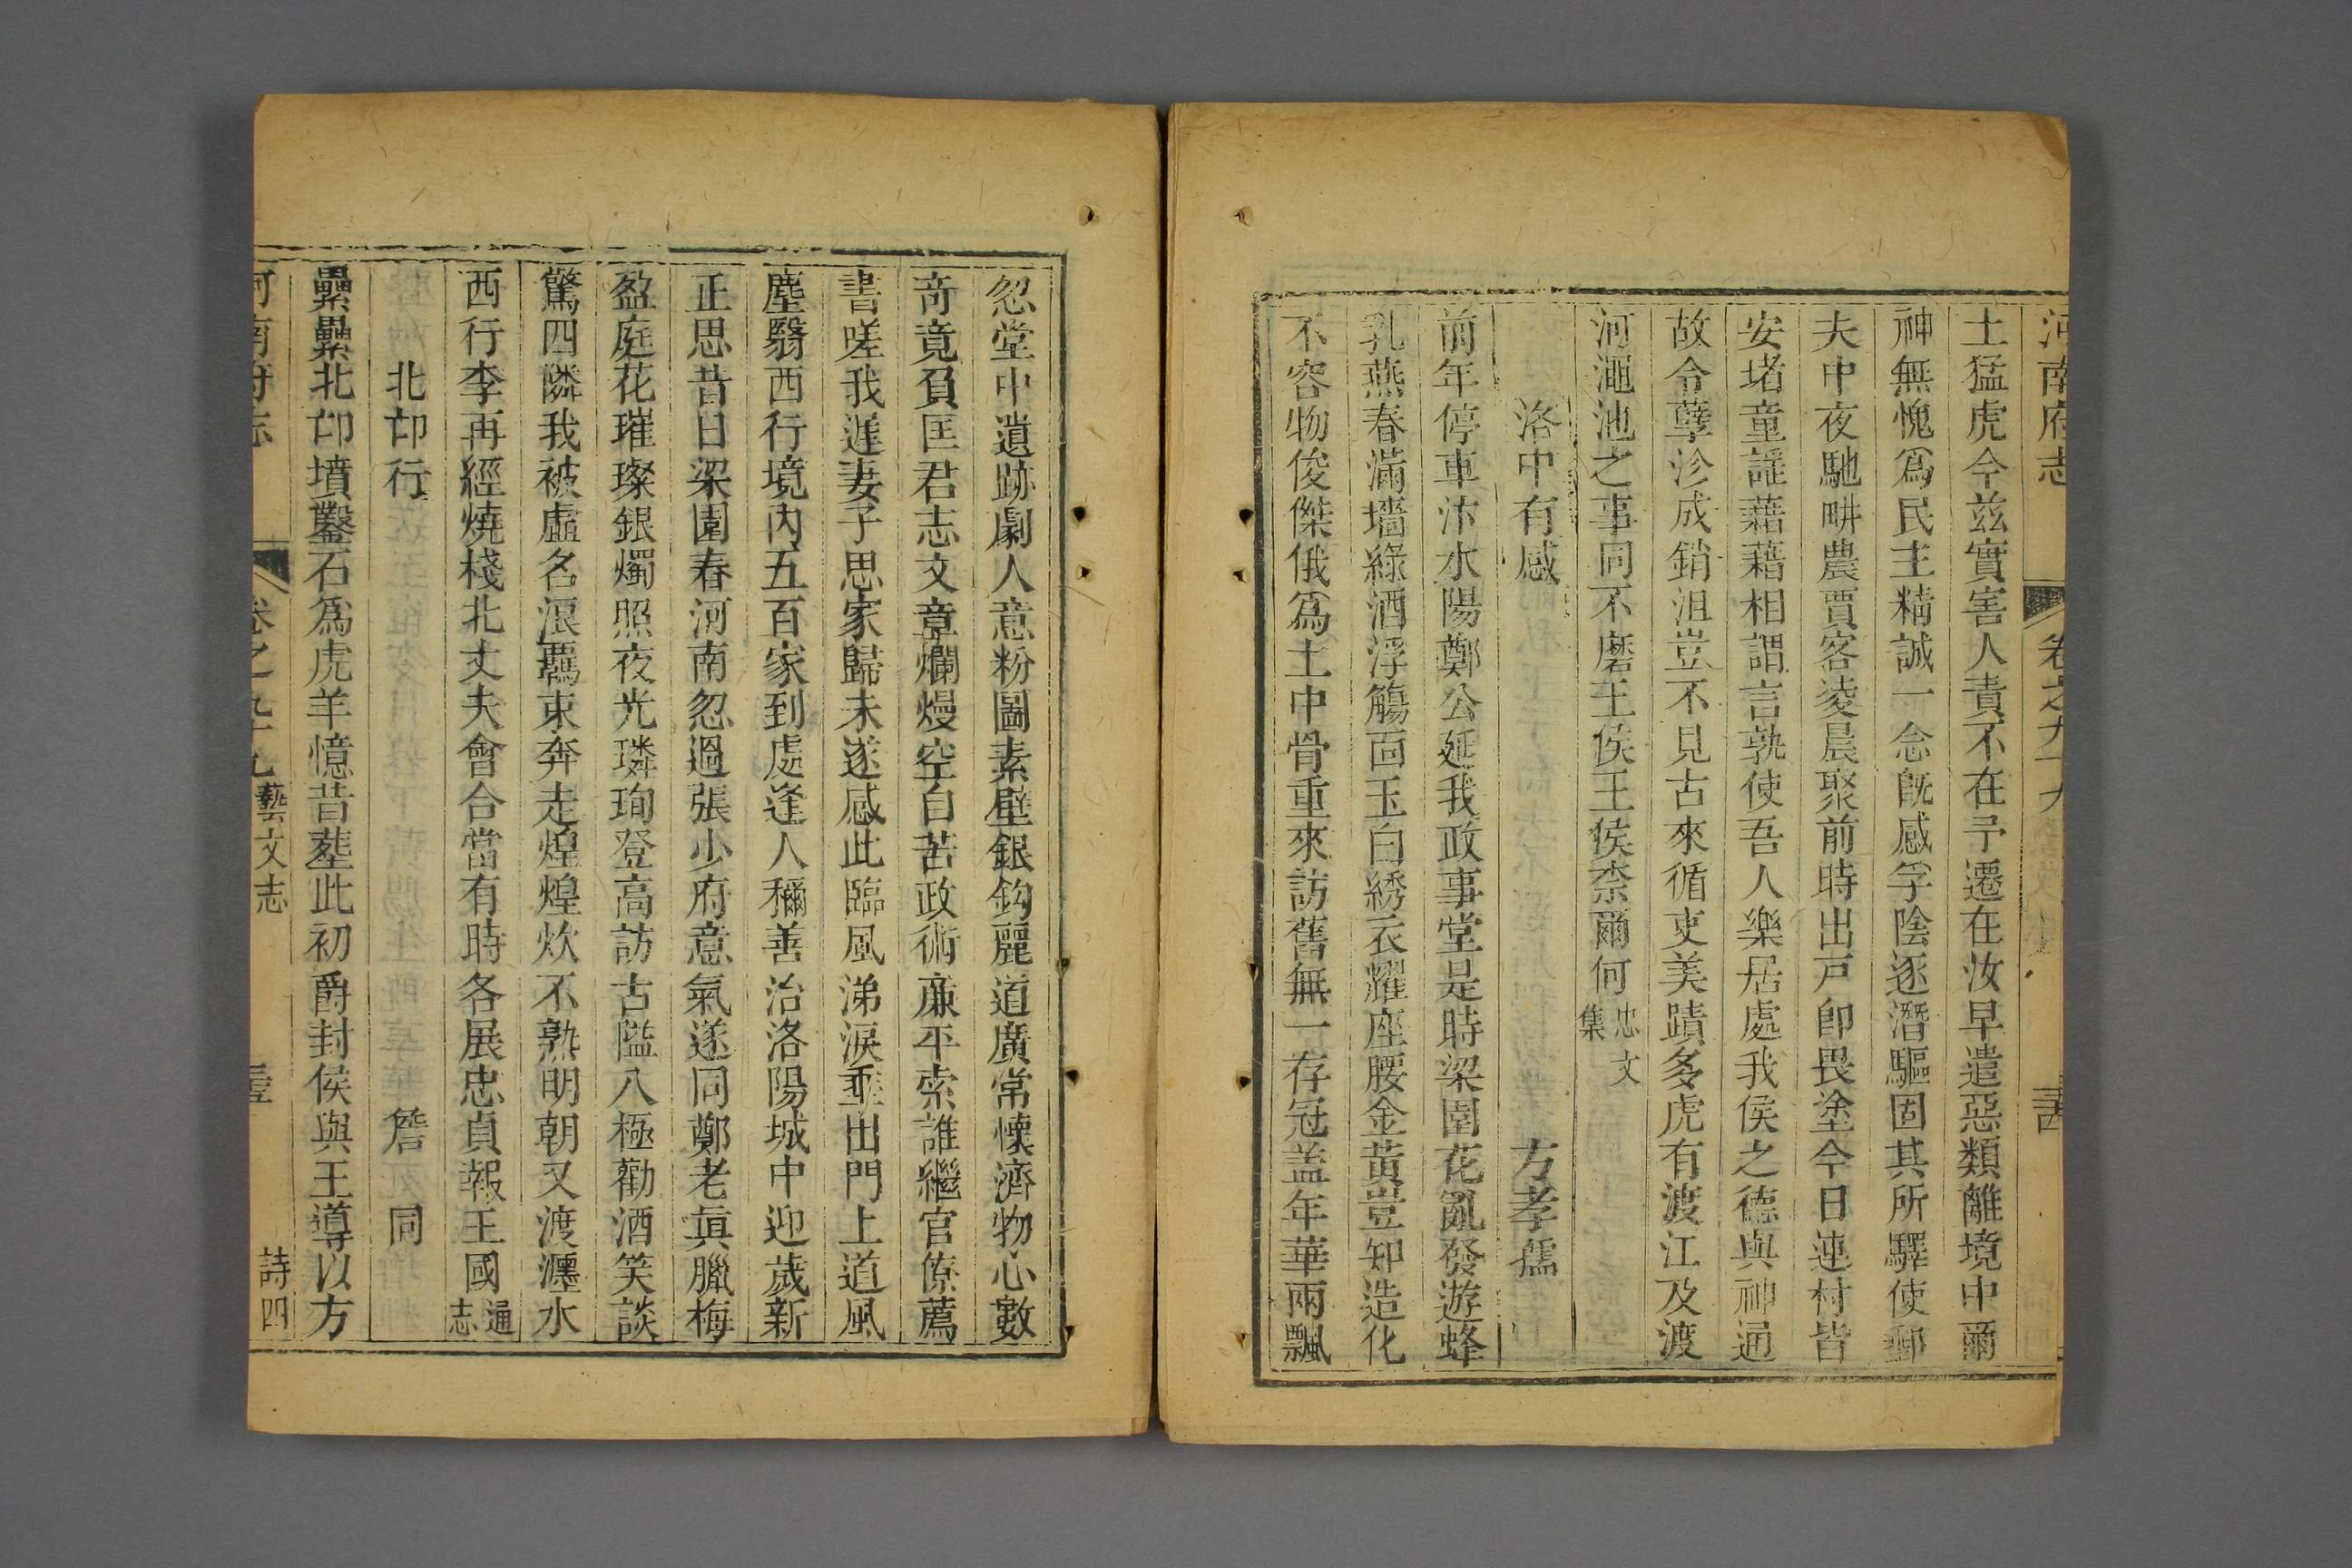 河南府志 卷之九十九
土猛虎今兹實害人責不在予遷在汝早遣惡類離境中爾
神無愧爲民主精誠一念旣感孚陰逐潛驅固其所驛使郵
夫中夜馳畊農賈客凌晨聚前時出戸卽畏塗今日連村皆
安堵童謡藉藉相謂言孰使吾人樂居處我侯之德與神通
故令孽沴成銷沮豈不見古來循吏美蹟多虎有渡江及渡
河澠池之事同不磨王侯王侯柰爾何忠文集
洛中有感 方孝孺
前年停車汴水陽鄭公延我政事堂是時梁園花亂發遊蜂
乳燕春滿墻綠酒浮觴面玉白綉衣耀座腰金黃豈知造化
不容物俊傑俄爲土中骨重來訪舊無一存冠盖年華兩飄
忽堂中遺跡劇人意粉圖素壁銀鈎麗道廣常懷濟物心數
奇竟負匡君志文章爛熳空自苦政術亷平索誰繼官僚薦
書嗟我遲妻子思家歸未遂感此臨風涕淚垂出門上道風
塵翳西行境內五百家到處逢人稱善治洛陽城中迎歲新
正思昔日梁園春河南忽過張少府意氣遂同鄭老眞臘梅
盈庭花璀璨銀燭照夜光璘珣登高訪古隘八極勸酒笑談
驚四隣我被虛名浪羈束奔走煌煌炊不熟明朝又渡瀍水
西行李再經燒棧北丈夫會合當有時各展忠貞報王國通志
北邙行 詹 同
纍纍北邙墳鑿石爲虎羊憶昔塟此初爵封侯與王導以方
河南府志 卷之九十九 藝文志 詩四